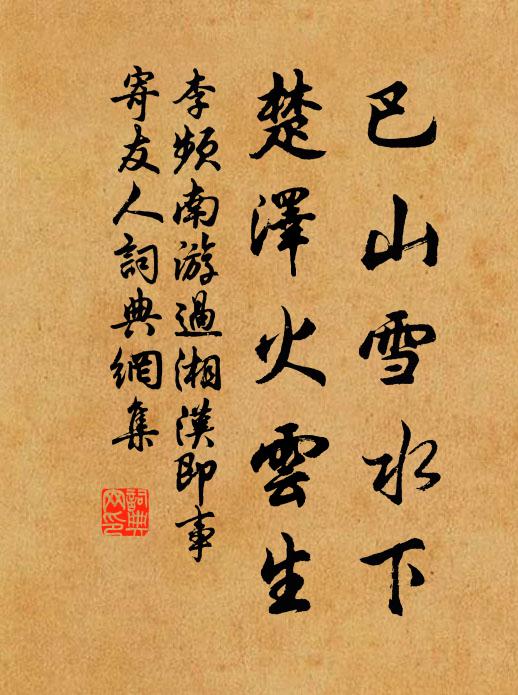 巴山雪水下
楚澤火雲生
李頻南游過湘漢即事
寄友人詞典網集
詞典
网印